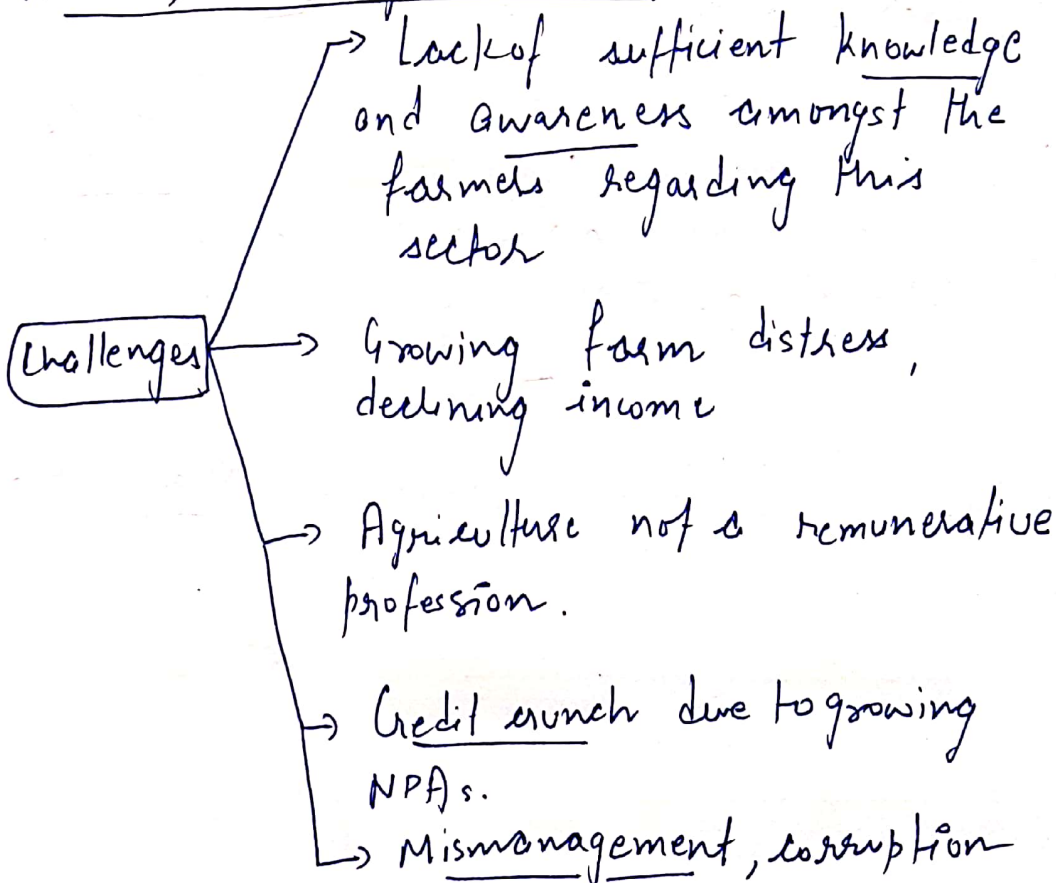 Lack of sufficient knowledge
and awareness amongst the
farmers regarding this
sector
Challenges
Growing farm distress,
declining income
Agriculture not a remunerative
profession.
Credit crunch due to growing
NPAs.
Mismanagement, corruption